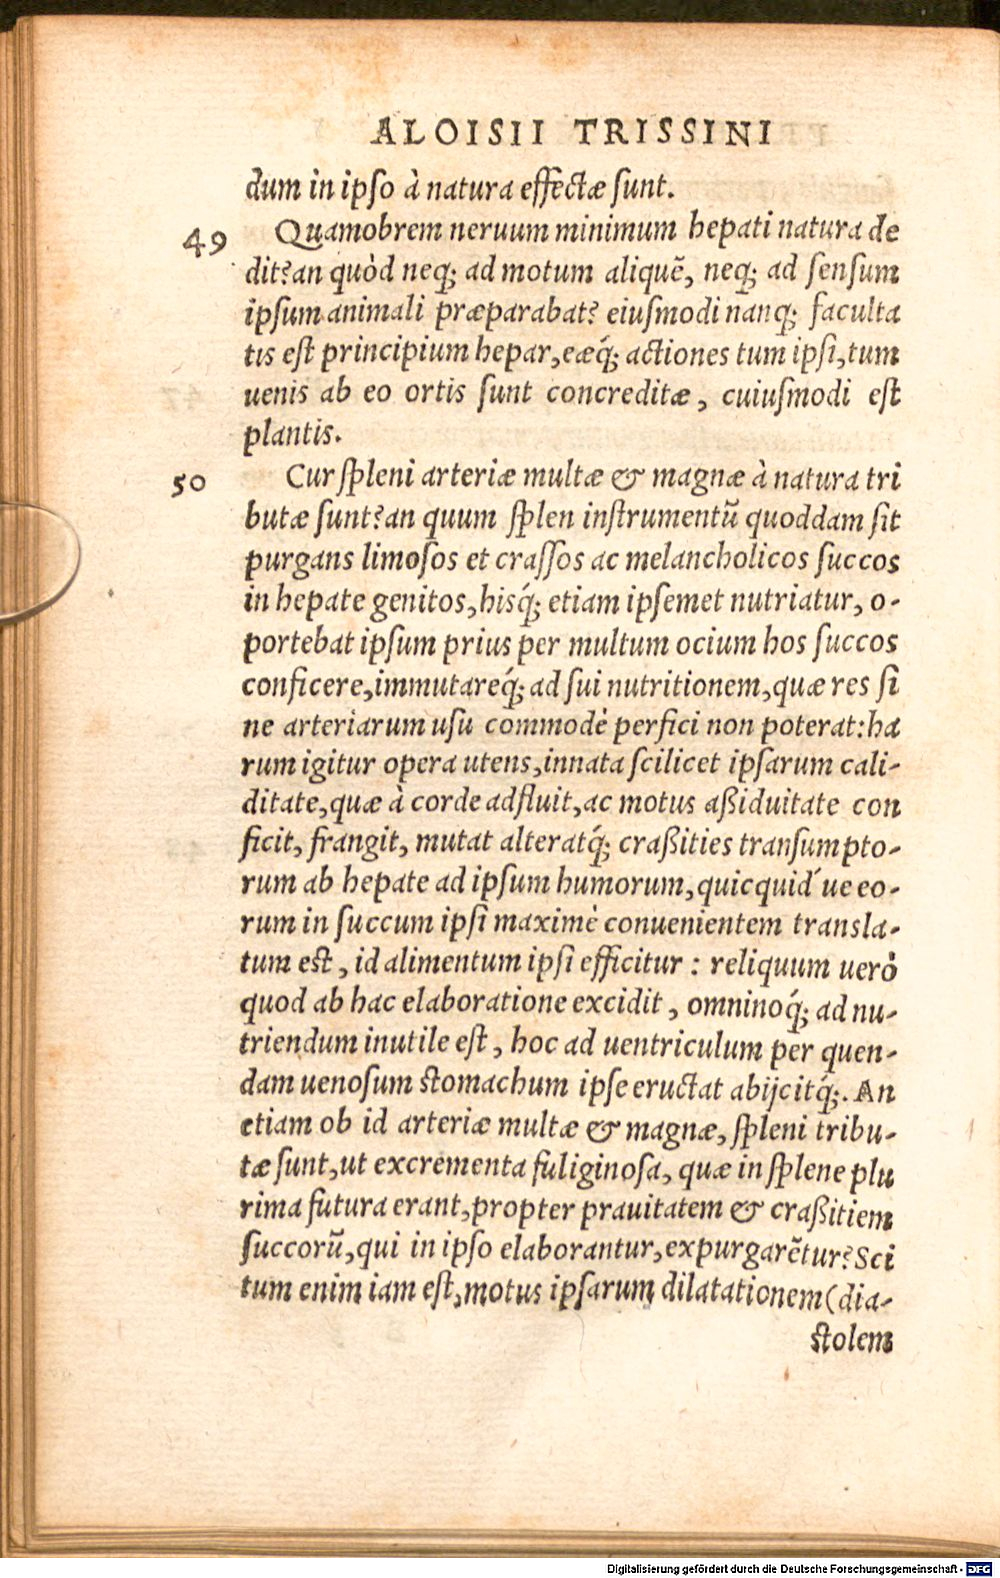 ALOISII TRISSINI
dum in ipso à natura effectæ sunt.
49 Quamobrem neruum minimum hepati natura de
dit? an quòd neq; ad motum aliquē, neq; ad sensum
ipsum animali præparabat? eiusmodi nanq; faculta
tis est principium hepar, eæq́; actiones tum ipsi, tum
uenis ab eo ortis sunt concreditæ, cuiusmodi est
plantis.
50 Cur spleni arteriæ multæ & magnæ à natura tri
butæ sunt? an quum splen instrumentū quoddam sit
purgans limosos et crassos ac melancholicos succos
in hepate genitos, hisq́; etiam ipsemet nutriatur, o-
portebat ipsum prius per multum ocium hos succos
conficere, immutareq́; ad sui nutritionem, quæ res si
ne arteriarum usu commodè perfici non poterat: ha
rum igitur opera utens, innata scilicet ipsarum cali-
ditate, quæ à corde adfluit, ac motus aßiduitate con
ficit, frangit, mutat alteratq́; craßities transumpto-
rum ab hepate ad ipsum humorum, quicquid´ue eo-
rum in succum ipsi maximè conuenientem transla-
tum est, id alimentum ipsi efficitur : reliquum uerò
quod ab hac elaboratione excidit, omninoq́; ad nu-
triendum inutile est, hoc ad uentriculum per quen-
dam uenosum stomachum ipse eructat abijcitq́;. An
etiam ob id arteriæ multæ & magnæ, spleni tribu-
tæ sunt, ut excrementa fuliginosa, quæ in splene plu
rima futura erant, propter prauitatem & craßitiem
succorū, qui in ipso elaborantur, expurgarētur? Sci
tum enim iam est, motus ipsarum dilatationem (dia-
stolem
Digitalisierung gefördert durch die Deutsche Forschungsgemeinschaft - DFG